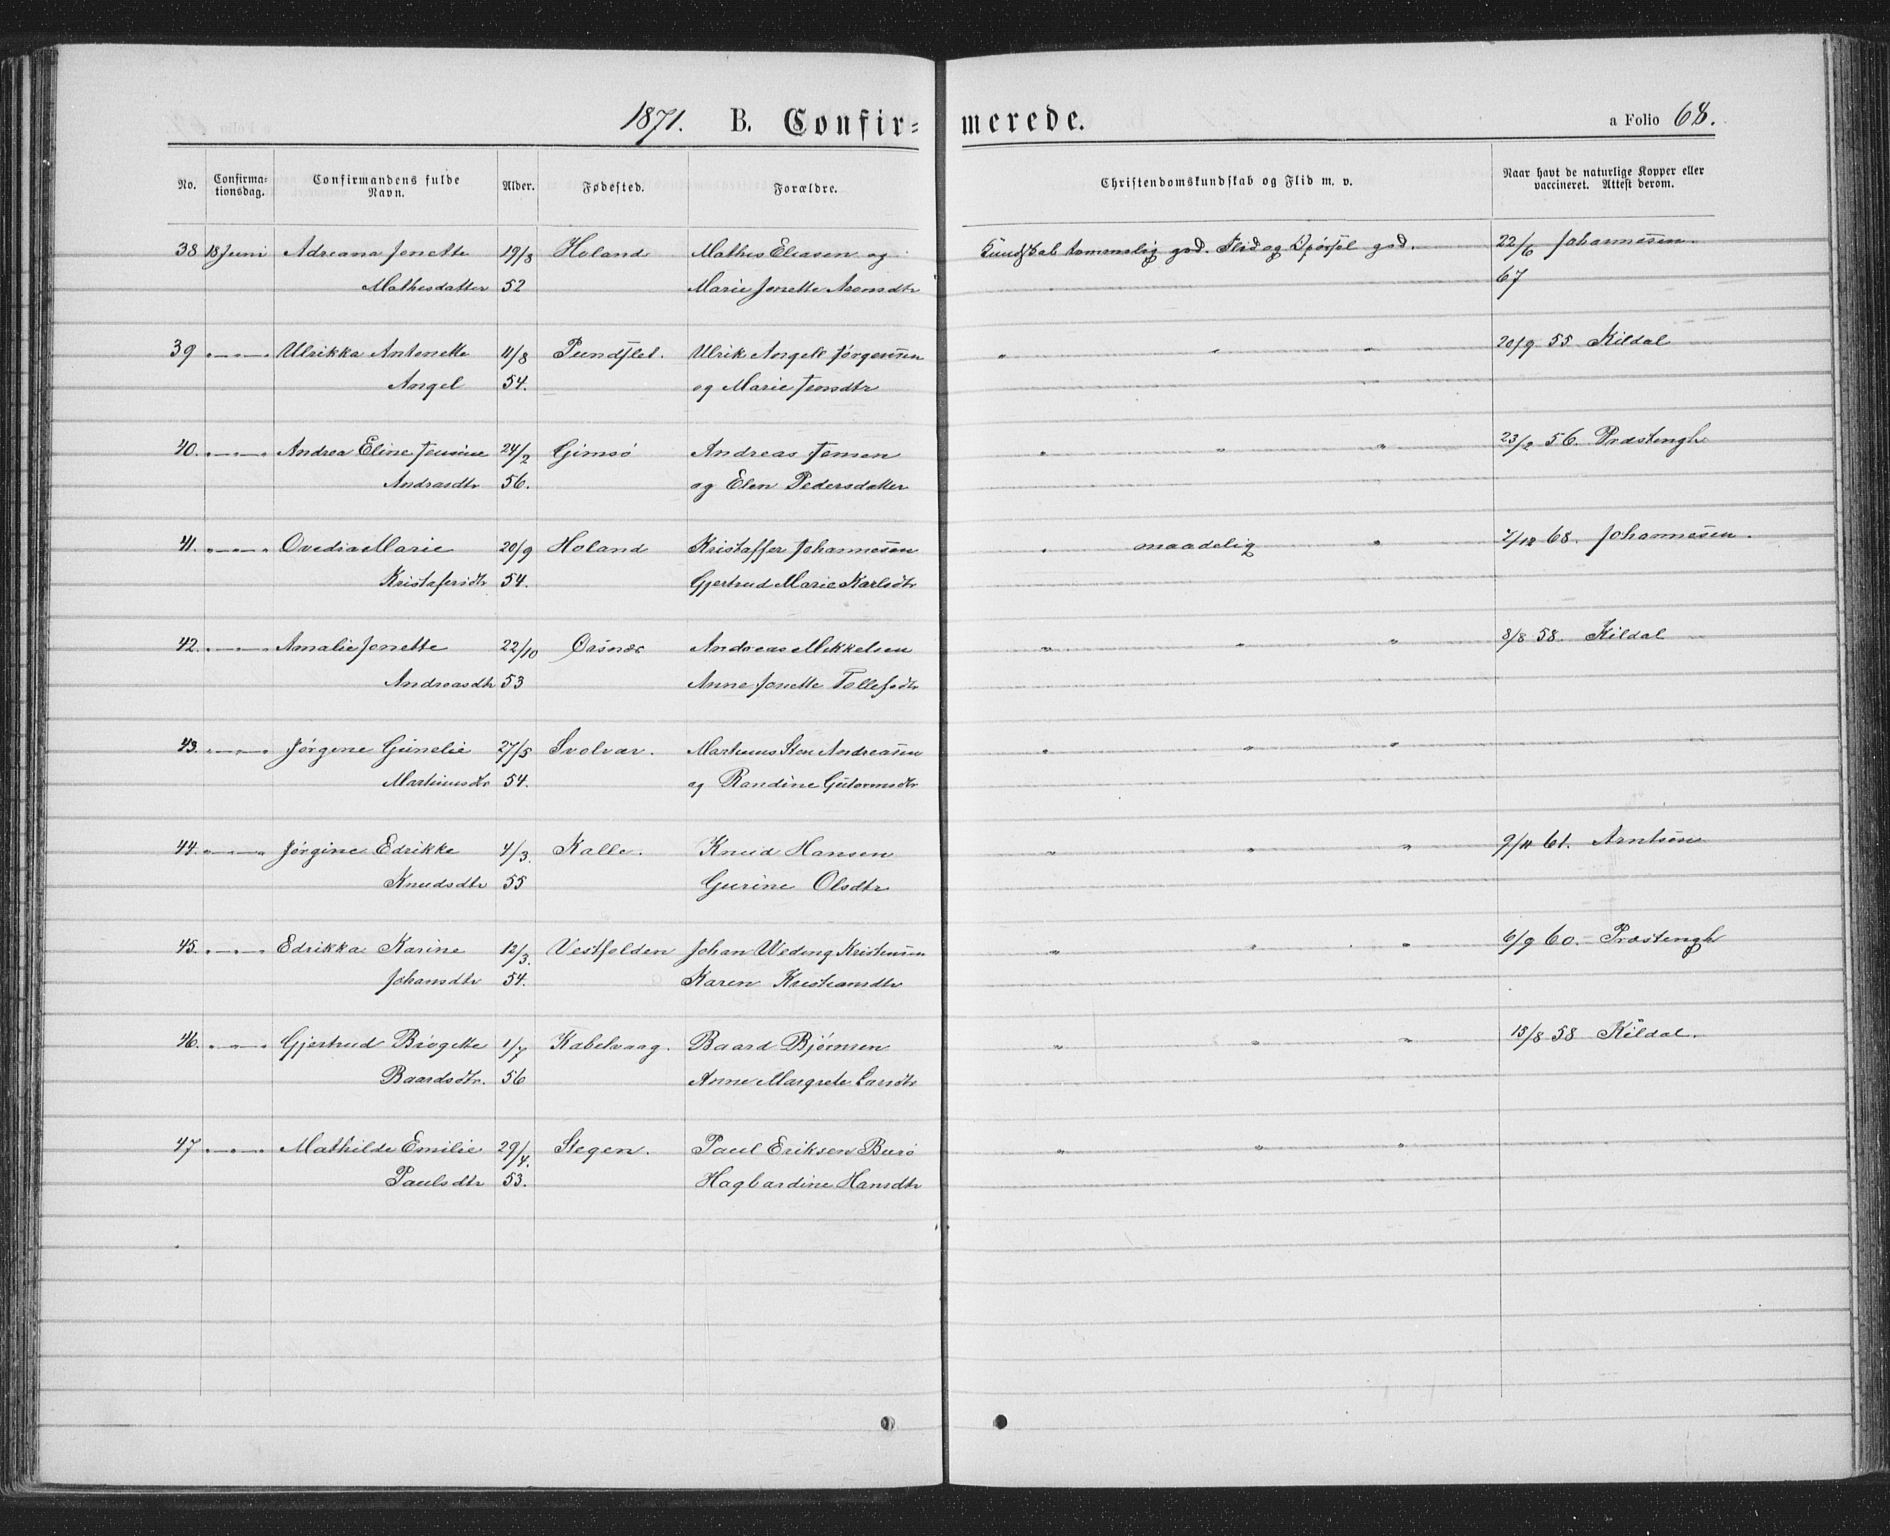 1871. B. Confir= merede. a Folio 68.
No. Confirma-tionsdag. Confirmandens fulde Navn. Alder. Fødested. Forældre. Christendomskundskab og Flid m. v. Naar havt de naturlige Kopper eller vaccineret. Attest derom.
38 18 Juni Adreana Jonette 19/8 Holand Mathis Eliasen og Kundskab temmelig god. Flid og Opførsel god. 22/6 Johannesen.
Mathisdatter 52 Marie Jonette Aronsdtr 67
39 " — " — " Ulrikka Antonette 11/8 Pundslet. Ulrik Angell Jørgensen " " " 20/9 55 Kildal
Angel 54. og Marie Jensdtr
40. " — " — " Andrea Eline Jensine 24/2 Gimsø Andreas Jensen " " " 23/2 56. Præstengh
Andrasdtr 56. og Elen Pedersdatter
41. " — " — " Ovedia Marie 20/9 Holand Kristaffer Johannesen " maadelig " 2/12 68. Johannesen.
Kristafersdtr 54. Gjertrud Marie Karlsdtr
42. " — " — " Amalie Jonette 22/10 Ørsnæs Andreas Mikkelsen " " " 8/8 58. Kildal
Andreasdtr 53 Anne Jonette Tollefsdtr
43. " — " — " Jørgine Gunelie 27/5 Svolvær. Martinus Sten Andreasen " " "
Martinusdtr 54. og Randine Gutormsdtr
44. " — " — " Jørgine Edrikke 4/3. Kalle. Knud Hansen " " " 9/11 61. Arntsen
Knudsdtr 55 Gurine Olsdtr
45. " — " — " Edrikka Karine 12/3. Vestfolden Johan Weding Kristensen " " " 6/9 60. Præstengh
Johansdtr 54. Karen Kristiansdtr
46. " — " — " Gjertrud Birgitte 1/7 Kabelvaag. Baard Bjørnsen " " " 15/8 58 Kildal.
Baardsdtr. 56 Anne Margrete Larsdtr
47 " — " — " Mathilde Emilie 29/4. Stegen. Paul Eriksen Burø " " "
Paulsdtr 53. Hagbardine Hansdtr